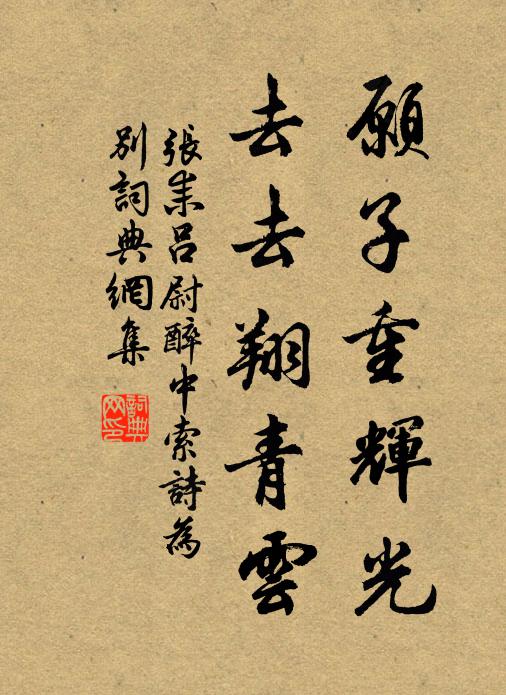 願子重輝光
去去翔青雲
張耒呂尉醉中索詩為
別詞典網集
詞典
网印